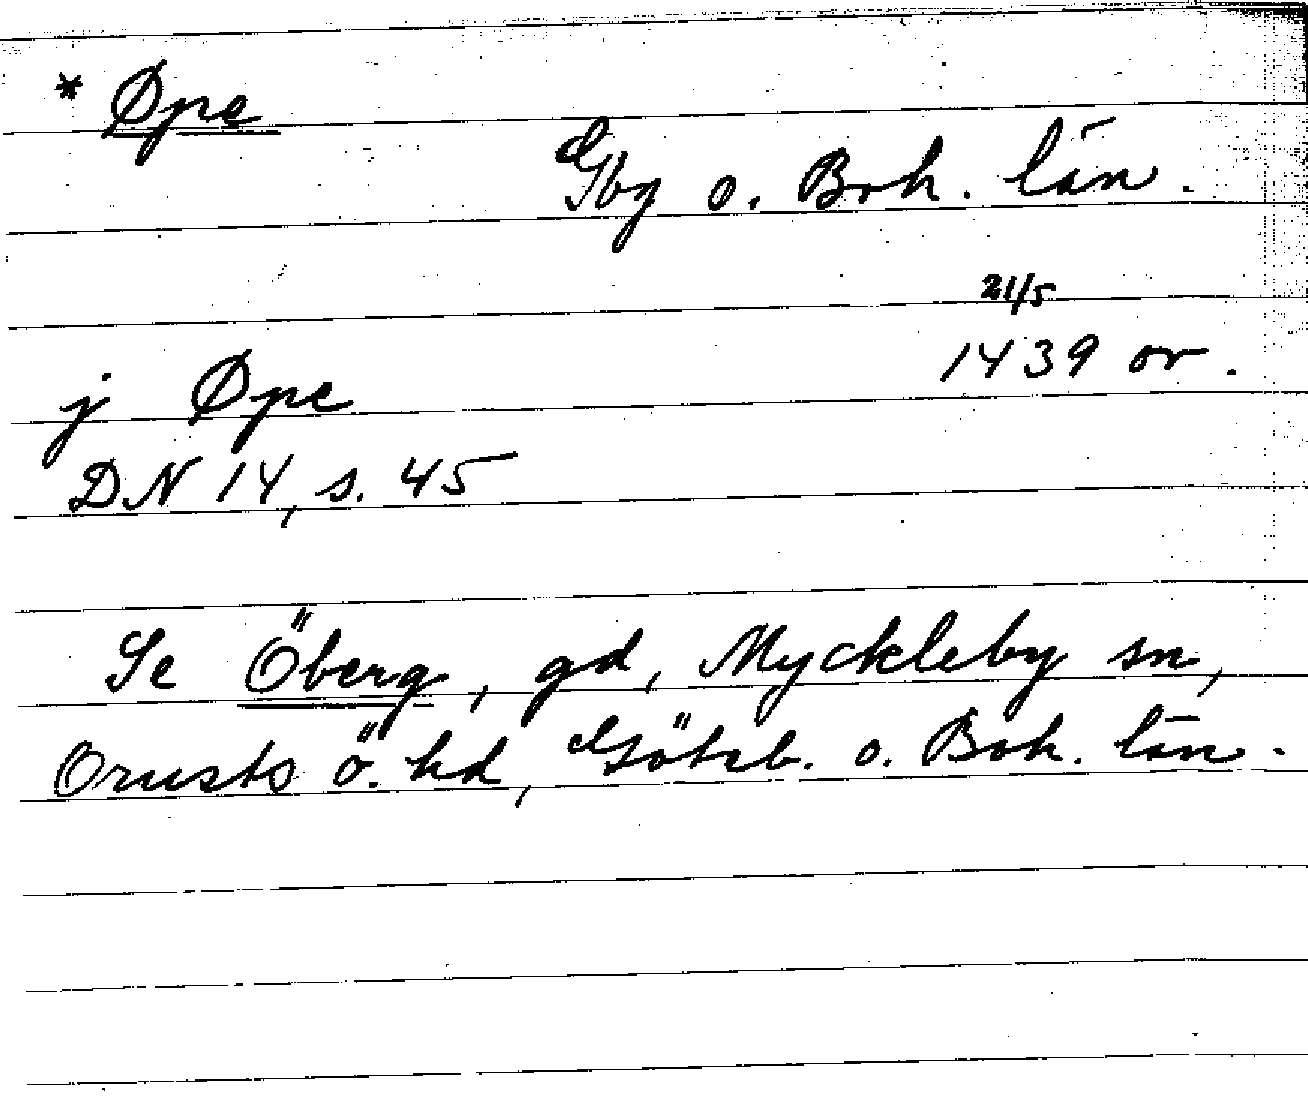 * Øpe
Gbg o. Boh. län.
21/5
1439 or.
j Øpe
DN 14, s. 45
Se Öberg, gd, Myckleby sn,
Orusts ö. hd, Göteb. o. Boh. län.